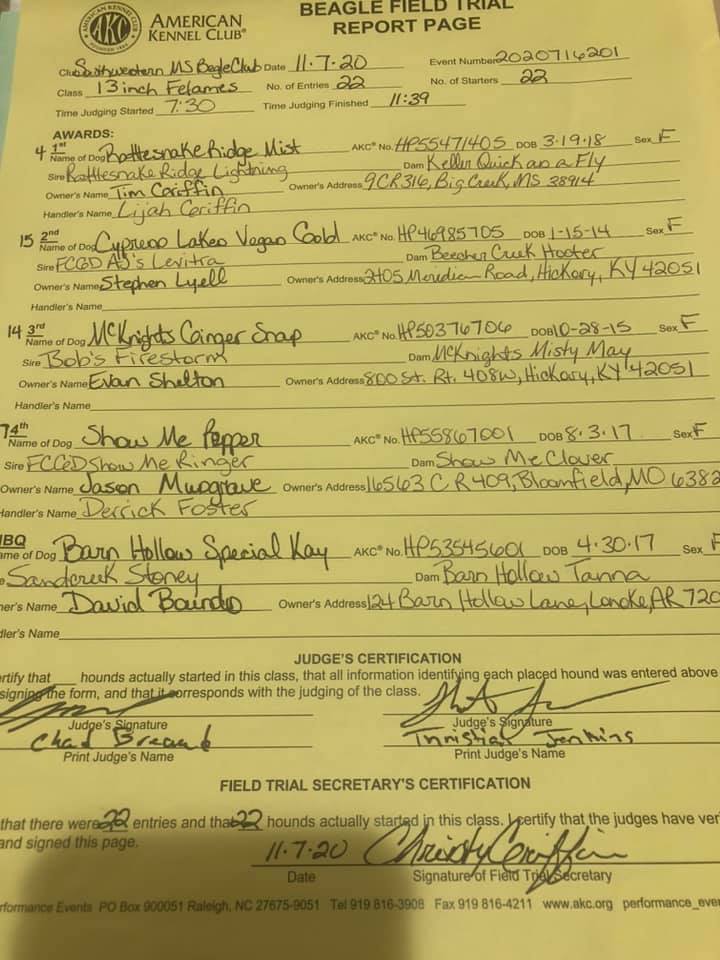 BEAGLE FIELD TRIAL
REPORT PAGE
AMERICAN KENNEL CLUB
FOUNDED 1884
AKC
AMERICAN
KENNEL CLUB®
Club Southwestern MS Begle Club Date 11-7-20 Event Number 2020716201
Class 13 inch Felames No. of Entries 22 No. of Starters 22
Time Judging Started 7:30 Time Judging Finished 11:39
AWARDS:
4 1st
Name of Dog Rattlesnake Ridge Mist AKC® No. HP55471405 DOB 3-19-18 Sex F
Sire Rattlesnake Ridge Lightning Dam Keller Quick as a Fly
Owner's Name Tim Griffin Owner's Address 9 CR 316, Big Creek, MS 38914
Handler's Name Lijah Griffin
15 2nd
Name of Dog Cypress Lakes Vegas Gold AKC® No. HP46985705 DOB 1-15-14 Sex F
Sire FCGD AJ's Levitra Dam Beecher Creek Hooter
Owner's Name Stephen Lyell Owner's Address 2405 Meridian Road, Hickory, KY 42051
Handler's Name
14 3rd
Name of Dog McKnights Ginger Snap AKC® No. HP50376706 DOB 10-28-15 Sex F
Sire Bob's Firestorm Dam McKnights Misty May
Owner's Name Evan Shelton Owner's Address 800 St. Rt. 408W, Hickory, KY 42051
Handler's Name
7 4th
Name of Dog Show Me Pepper AKC® No. HP55867001 DOB 8-3-17 Sex F
Sire FCGD Show Me Ringer Dam Show Me Clover
Owner's Name Jason Musgrave Owner's Address 16563 C R 409, Bloomfield, MO 6382
Handler's Name Derrick Foster
NBQ
ame of Dog Barn Hollow Special Kay AKC® No. HP53545601 DOB 4-30-17 Sex F
e Sandcreek Stoney Dam Barn Hollow Tanna
ner's Name David Bounds Owner's Address 124 Barn Hollow Lane, Lonoke, AR 720
dler's Name
JUDGE'S CERTIFICATION
rtify that hounds actually started in this class, that all information identifying each placed hound was entered above
signing the form, and that it corresponds with the judging of the class.
Judge's Signature Judge's Signature
Chad Jenkins
Print Judge's Name Print Judge's Name
FIELD TRIAL SECRETARY'S CERTIFICATION
that there were 22 entries and that 22 hounds actually started in this class. I certify that the judges have ver
and signed this page.
11-7-20 Christy Griffin
Date Signature of Field Trial Secretary
rformance Events PO Box 900051 Raleigh, NC 27675-9051 Tel 919 816-3908 Fax 919 816-4211 www.akc.org performance_eve